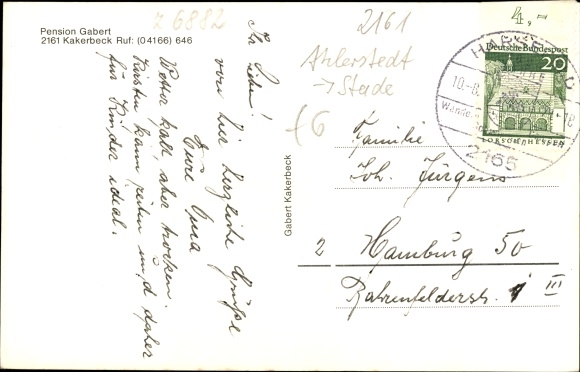 Pension Gabert
2161 Kakerbeck Ruf: (04166) 646
z 6882
2161
Ahlerstedt
→ Stade
4,-
Deutsche Bundespost
20
LORSCH/HESSEN
2165
Ihr Lieben!
von hier herzliche Grüße
Eure Opa
Wetter kalt aber trocken.
Kirsten kann reiten und daher
für Kinder ideal.
Gabert Kakerbeck
Familie
Joh. Jürgens
2 Hamburg 50
Bahrenfelderstr. III